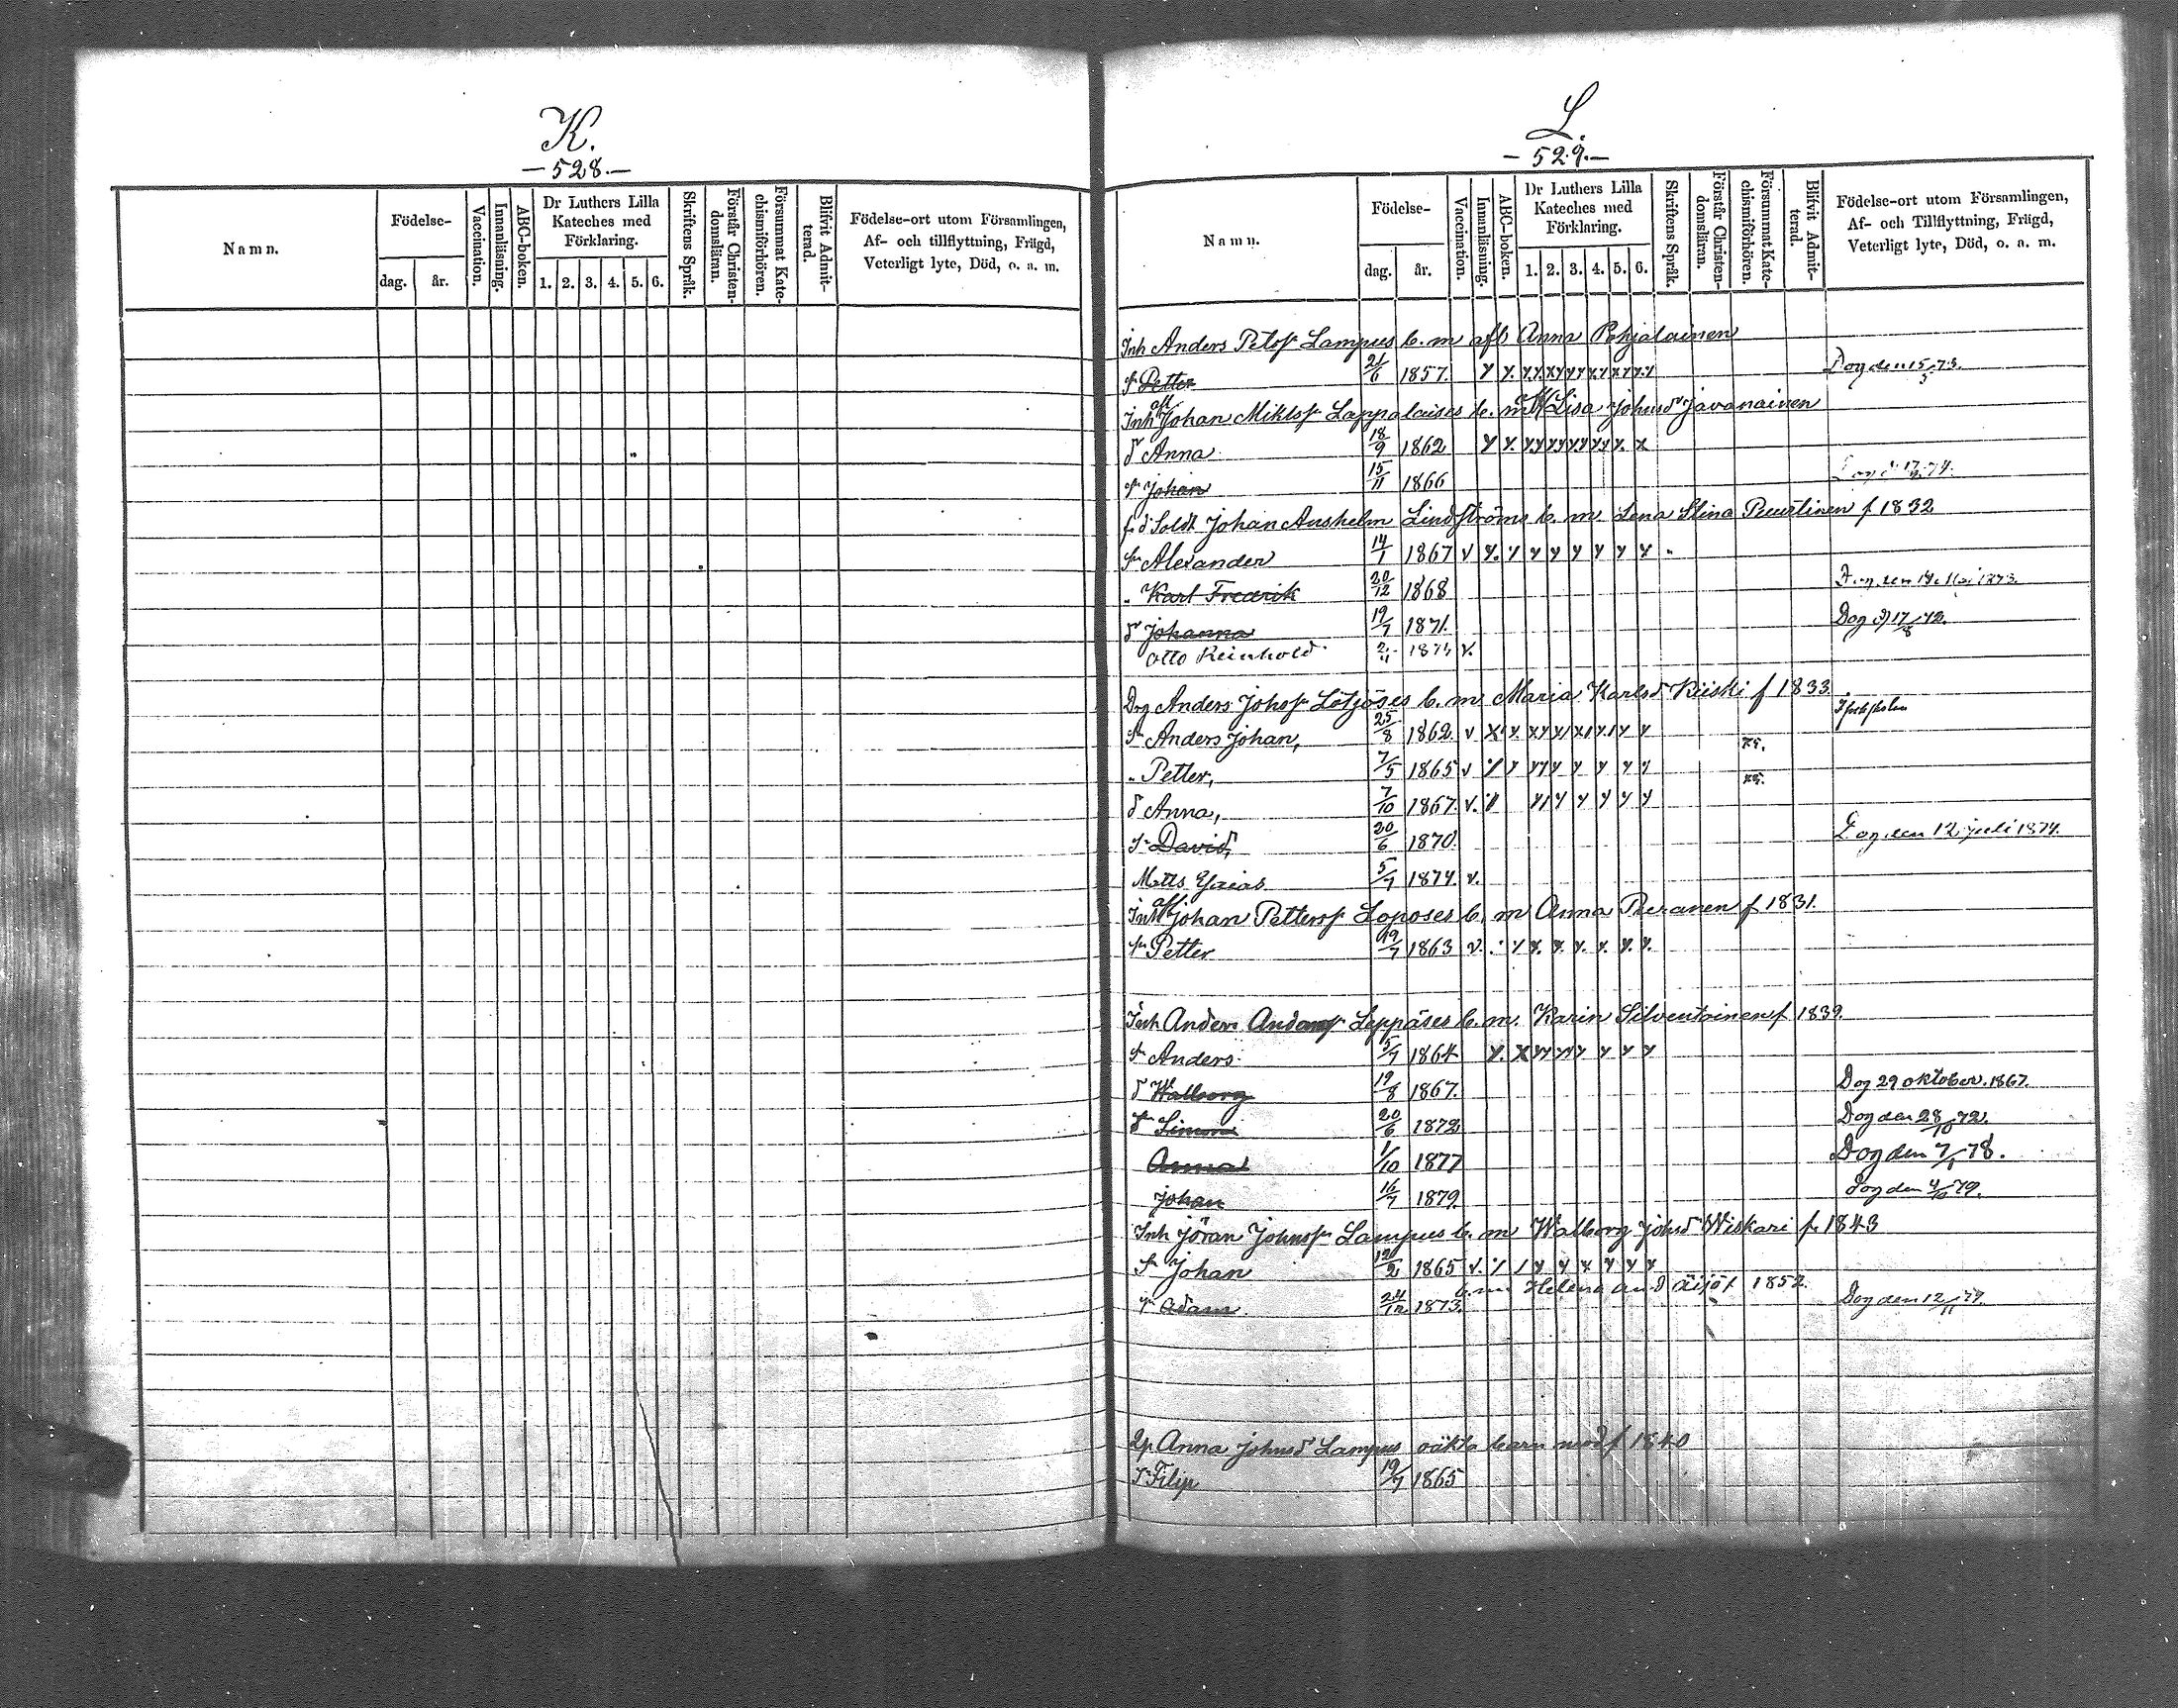 K.
—528.—
Namn.
Födelse-
dag.
år.
Vaccination.
Innanläsning.
ABC-boken.
Dr Luthers Lilla Kateches med Förklaring.
1. 2. 3. 4. 5. 6.
Skriftens Språk.
Förstår Christendomsläran.
Försummat Katechismiförhören.
Blifvit Admitterad.
Födelse-ort utom Församlingen,
Af- och tillflyttning, Frägd,
Veterligt lyte, Död, o. a. m.
L.
—529.—
Namn.
Födelse-
dag.
år.
Vaccination.
Innanläsning.
ABC-boken.
Dr Luthers Lilla Kateches med Förklaring.
1. 2. 3. 4. 5. 6.
Skriftens Språk.
Förstår Christendomsläran.
Försummat Katechismiförhören.
Blifvit Admitterad.
Födelse-ort utom Församlingen,
Af- och Tillflyttning, Frägd,
Veterligt lyte, Död, o. a. m.
Inh Anders Petss Lampus b. m afl. Anna Pohjalainen
s. Petter 21/6 1857. Dog den 15/3 73.
Inh afl Johan Miklss Lappalaises b. m afl Lisa Johnsd Javanainen
d Anna 18/9 1862
s. Johan 15/11 1866
f. d Soldt Johan Anshelm Lindströms b. m. Lena Stina Puustinen f 1832
s. Alexander 14/1 1867
" Karl Fredrik 20/12 1868 Dog den 14 Maj 1873.
d Johanna 19/7 1871. Dog d 17/8 72.
Otto Reinhold 1874 v.
Drg Anders Johss Lötjöses b. m. Maria Karlsd Kiiski f 1833
s. Anders Johan, 25/8 1862
" Petter, 7/5 1865
d Anna, 7/10 1867
s. David, 20/6 1870. Dog den 12 juli 1874.
Matts 5/7 1874. v.
Inh afl Johan Petterss Loposes b. m Anna f 1831.
s. Petter 19/7 1863
Inh Anders Andersss Leppäses b. m. Karin Silventoinen f 1839.
s. Anders 5/7 1864
d Walborg 19/8 1867. Dog 29 oktober. 1867.
s. Simon 20/6 1872 Dog den 28/10 72.
Anna 1/10 1877 Dog den 7/1 78.
Johan 16/7 1879. Dog den 79.
Inh Jöran Johnss Lampus b. m Walborg Johsd Wiskari f. 1843
s. Johan 12/2 1865
b. m. Helena And d Äijö f 1852.
s. Adam 24/12 1873. Dog den 12/11 79.
Qp Anna Johnsd Lampus oäkta barn mod f 1840
s. Filip 19/7 1865